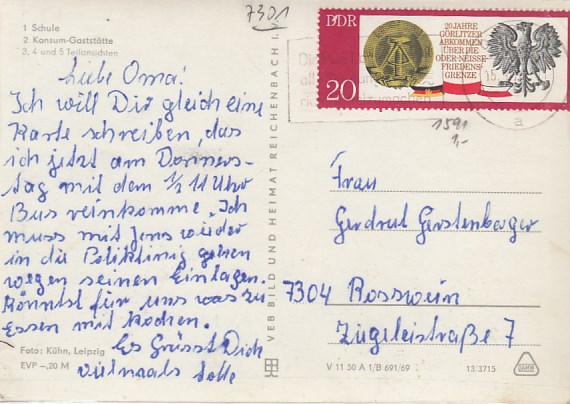 7301
1 Schule
2 Konsum-Gaststätte
3, 4 und 5 Teilansichten
Liebe Oma!
Ich will Dir gleich eine
Karte schreiben, das
ich jetzt am Donners-
tag mit dem 1/2 11 Uhr
Bus reinkomme. Ich
muss mit Jens wieder
in die Poliklinig gehen
wegen seinen Einlagen.
Könntst für uns was zu
Essen mit kochen.
Es Grüsst Dich
vielmals
Foto: Kühn, Leipzig
EVP -,20 M
VEB BILD UND HEIMAT REICHENBACH I. V.
DDR
20 JAHRE
GÖRLITZER
ABKOMMEN
ÜBER DIE
ODER-NEISSE-
FRIEDENS-
GRENZE
20
15.
a
1591
1,-
Frau
Gerdrud Gerstenberger
7304 Rosswein
Zügeleistraße 7
V 11 50 A 1/B 691/69
13/3715